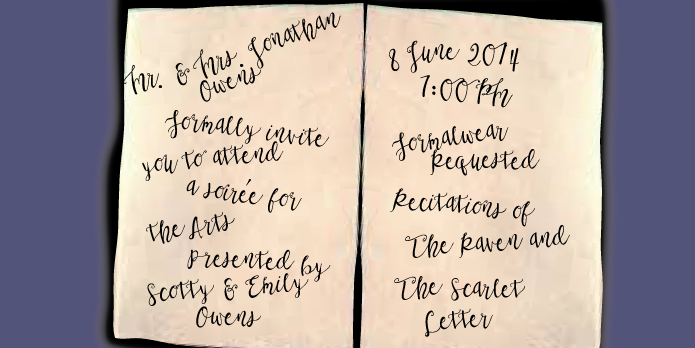 Mr. & Mrs. Jonathan
Owens
Formally invite
you to attend
a soirée for
the Arts
Presented by
Scotty & Emily
Owens
8 June 2014
7:00 PM
Formalwear
Requested
Recitations of
The Raven and
The Scarlet
Letter